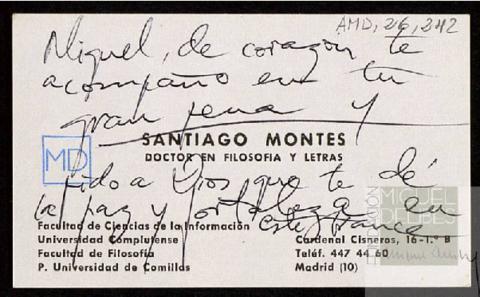 AMD, 26, 242
Miguel, de corazón te
acompaño en tu
gran pena y
SANTIAGO MONTES
DOCTOR EN FILOSOFIA Y LETRAS
MD
pido a Dios que te dé
la paz y fortaleza en
este trance
Facultad de Ciencias de la Información
Universidad Complutense
Facultad de Filosofía
P. Universidad de Comillas
Cardenal Cisneros, 16-1.° B
Teléf. 447 44 60
Madrid (10)
FUNDACIÓN
MIGUEL
DELIBES